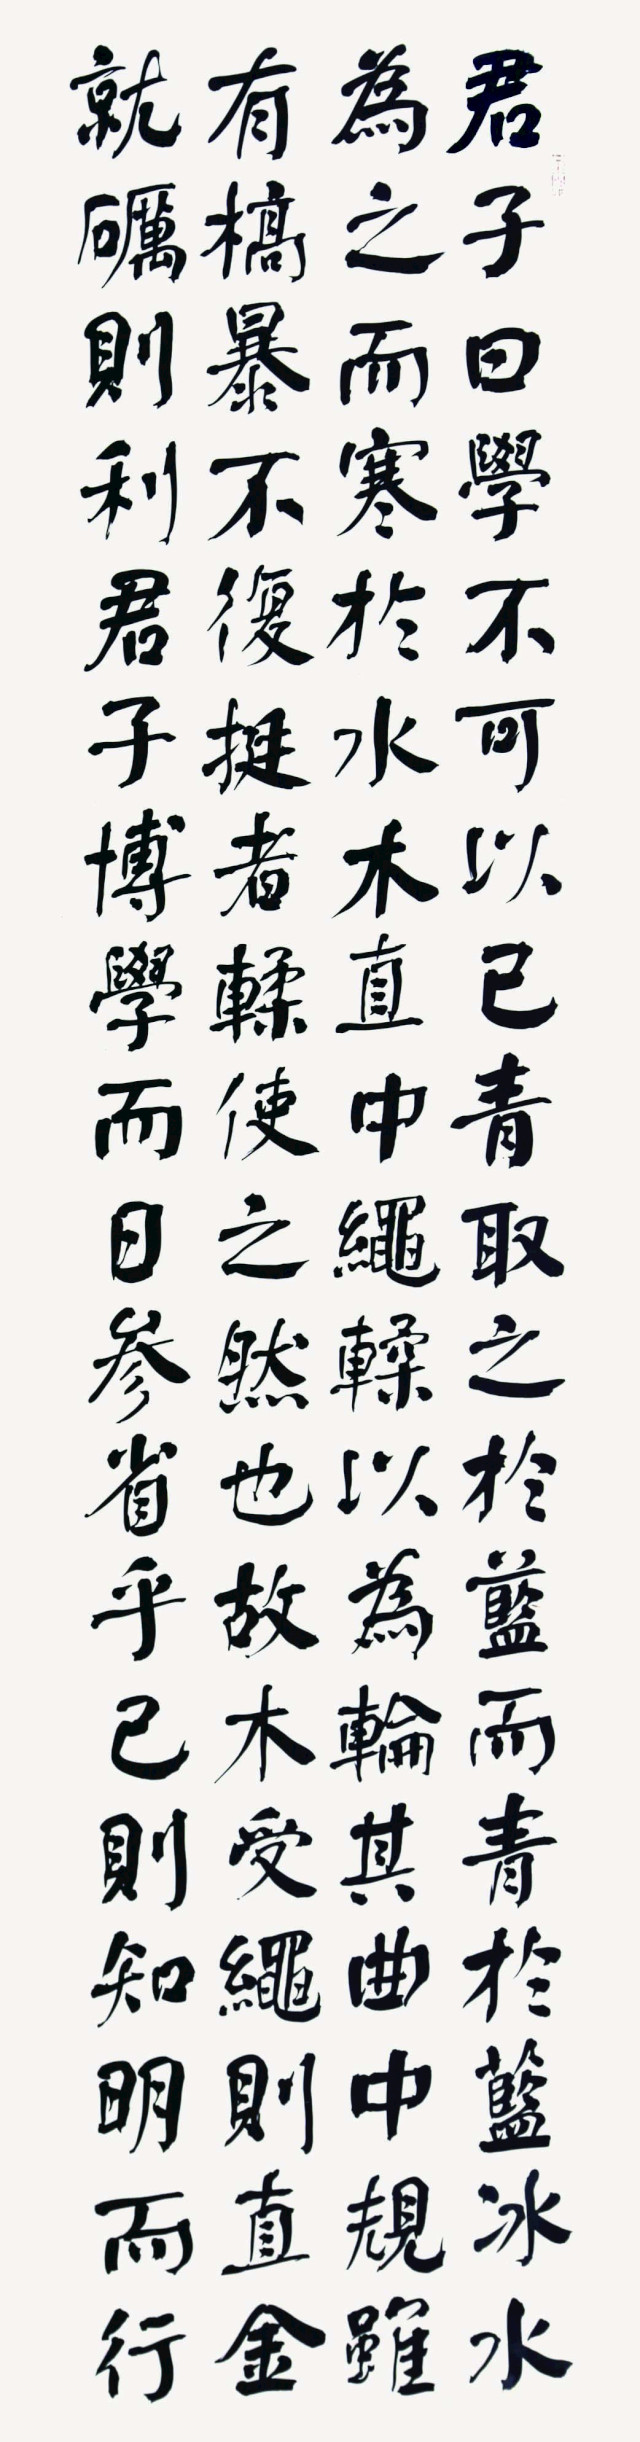 君子曰學不可以已青取之於藍而青於藍冰水
為之而寒於水木直中繩輮以為輪其曲中規雖
有槁暴不復挺者輮使之然也故木受繩則直金
就礪則利君子博學而日參省乎己則知明而行